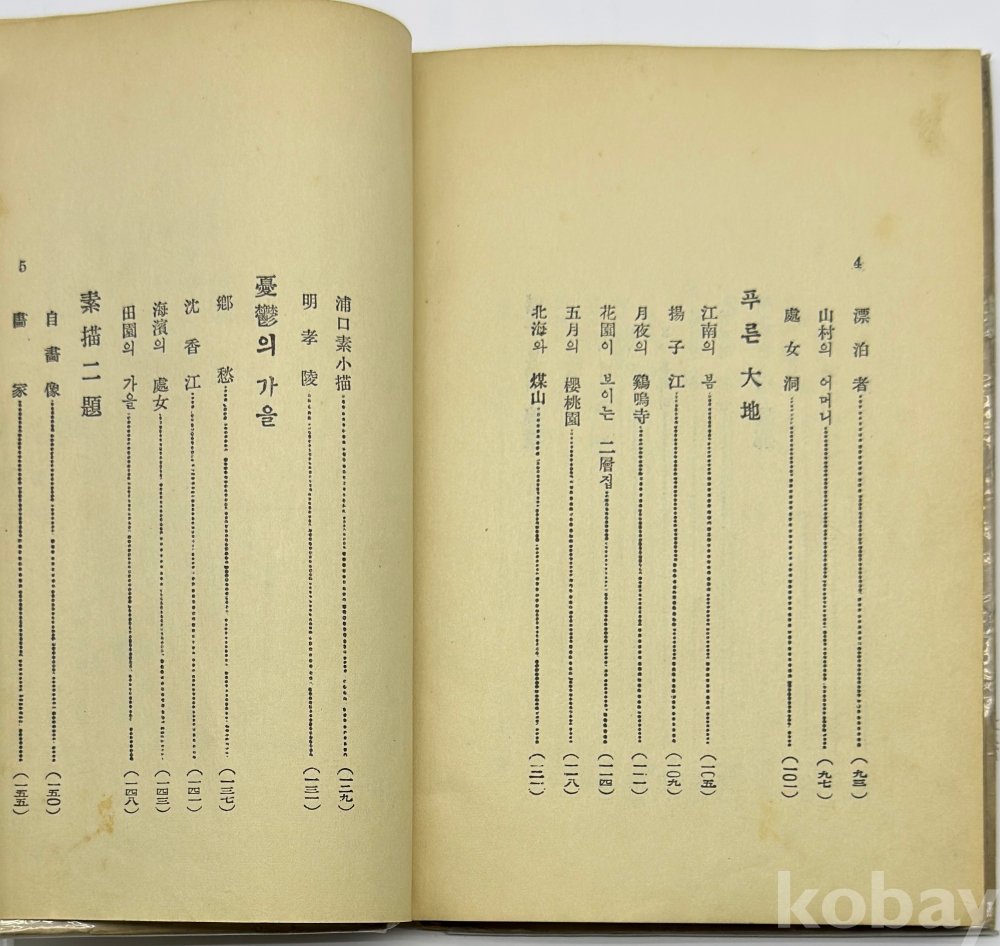 4
漂泊者 (九三)
山村의 어머니 (九七)
處女洞 (一〇一)
푸른 大地
江南의 봄 (一〇五)
揚子江 (一〇九)
月夜의 鷄鳴寺 (一一一)
花園이 보이는 二層집 (一一四)
五月의 櫻桃園 (一一八)
北海와 煤山 (一二一)
浦口素小描 (一二九)
明孝陵 (一三一)
憂鬱의 가을
鄕愁 (一三七)
沈香江 (一四一)
海濱의 處女 (一四三)
田園의 가을 (一四八)
素描二題
自畵像 (一五〇)
畵家 (一五五)
5
kobay